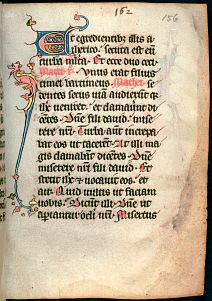 162
156
Et egredientib; illis a
iherico. secuta est eu
turba m̄lta. Et ecce duo ceci
Marc. Unus erat filius
timei bartimeus. Math.
sedentes secus uiā audierūt q̄
ih̄c ueniret. et clamauerūt
dicētes. Dn̄e fili dauid. mise
rere nr̄i. Turba aut̄ increpa
bat eos ut tacerēt. At illi ma
gis clamabāt dicētes. Dn̄e
miserere nr̄i fili dauid. Et
stetit ih̄c et uocauit eos. et
ait. Quid uultis ut faciam
uobis. Dicūt illi. Dn̄e ut
aperiantur oculi nr̄i. Misertus